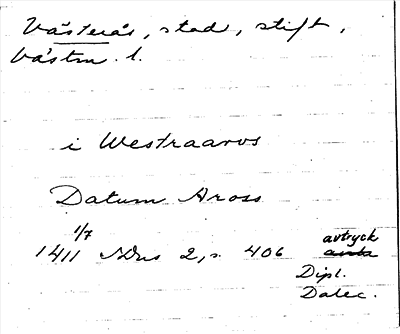 Västerås, stad, stift,
Västm. l.
i Westraaros
Datum Aross
1/7
1411 SDns 2, s. 406 avtryck
Dipl.
Dalec.